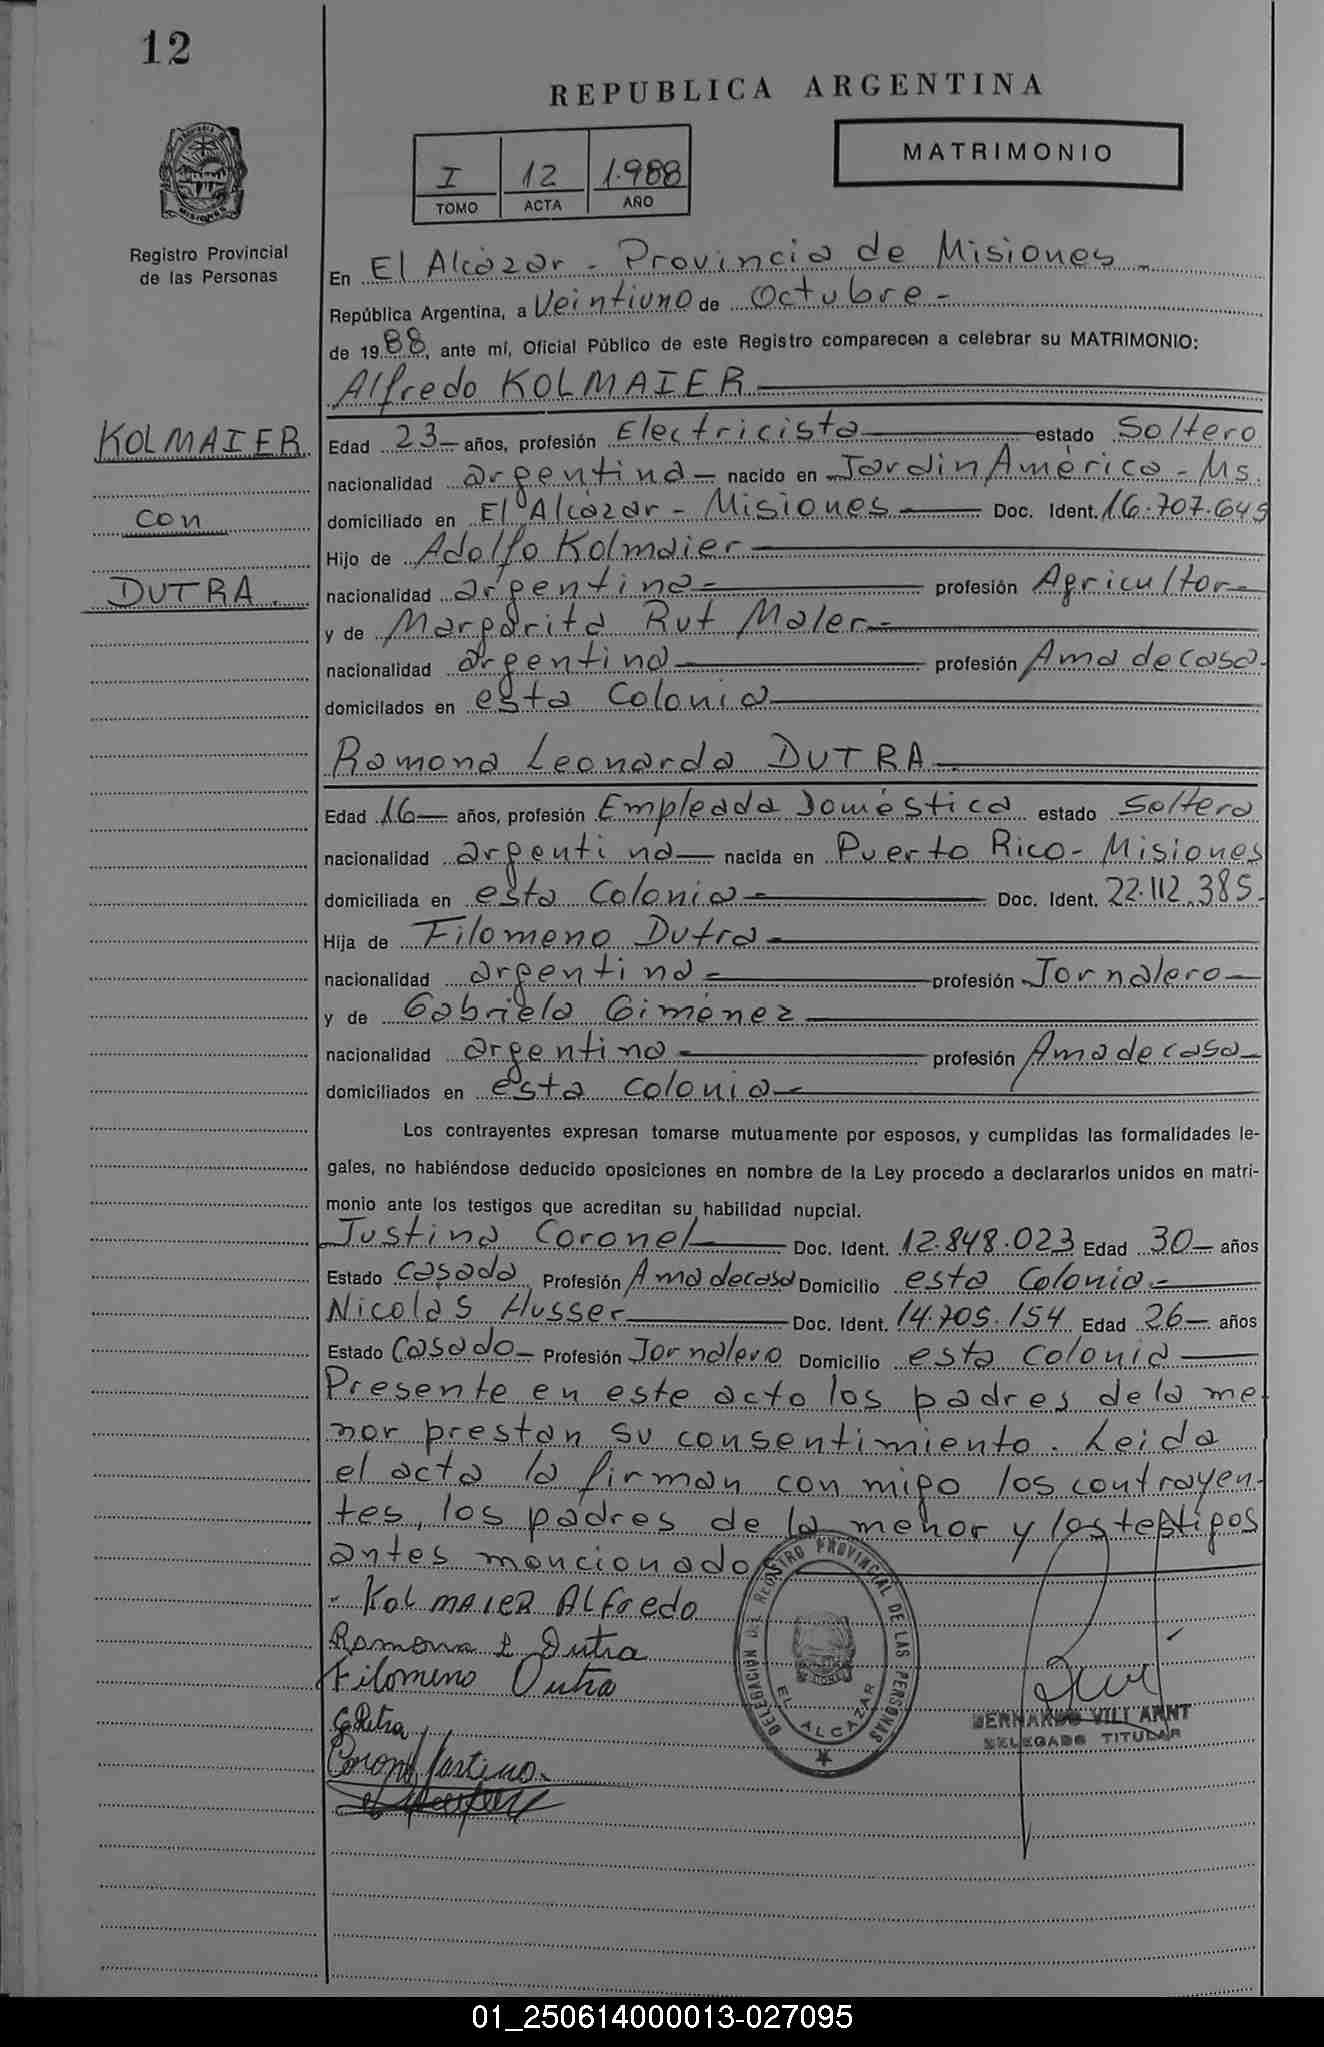 12
REPUBLICA ARGENTINA
I 12 1.988
TOMO ACTA AÑO
MATRIMONIO
Registro Provincial
de las Personas
En El Alcázar - Provincia de Misiones -
República Argentina, a Veintiuno de Octubre -
de 1988, ante mí, Oficial Público de este Registro comparecen a celebrar su MATRIMONIO:
Alfredo KOLMAIER
KOLMAIER
con
DUTRA.
Edad 23 años, profesión Electricista estado Soltero
nacionalidad argentina nacido en Jardin América - Ms.
domiciliado en El Alcázar - Misiones Doc. Ident. 16.707.645
Hijo de Adolfo Kolmaier
nacionalidad argentina profesión Agricultor
y de Margarita Rut Maler
nacionalidad argentina profesión Ama de casa
domicilados en esta Colonia
Ramona Leonarda DUTRA
Edad 16 años, profesión Empleada Doméstica estado Soltera
nacionalidad argentina nacida en Puerto Rico - Misiones
domiciliada en esta Colonia Doc. Ident. 22.112.385
Hija de Filomeno Dutra
nacionalidad argentina profesión Jornalero
y de Gabriela Giménez
nacionalidad argentina profesión Ama de casa
domiciliados en esta colonia
Los contrayentes expresan tomarse mutuamente por esposos, y cumplidas las formalidades le-
gales, no habiéndose deducido oposiciones en nombre de la Ley procedo a declararlos unidos en matri-
monio ante los testigos que acreditan su habilidad nupcial.
Justina Coronel Doc. Ident. 12.848.023 Edad 30 años
Estado casada Profesión Ama de casa Domicilio esta Colonia
Nicolás Husser Doc. Ident. 14.705.154 Edad 26 años
Estado Casado Profesión Jornalero Domicilio esta colonia
Presente en este acto los padres de la me
nor prestan su consentimiento. Leida
el acta la firman con migo los contrayen-
tes, los padres de la menor y los testigos
antes mencionados
- KOLMAIER ALfredo
Ramona L Dutra
Filomeno Dutra
Coronel Justina.
DELEGACIÓN DEL REGISTRO PROVINCIAL DE LAS PERSONAS
EL ALCAZAR
BERNARDO VILLANNT
DELEGADO TITULAR
01_250614000013-027095